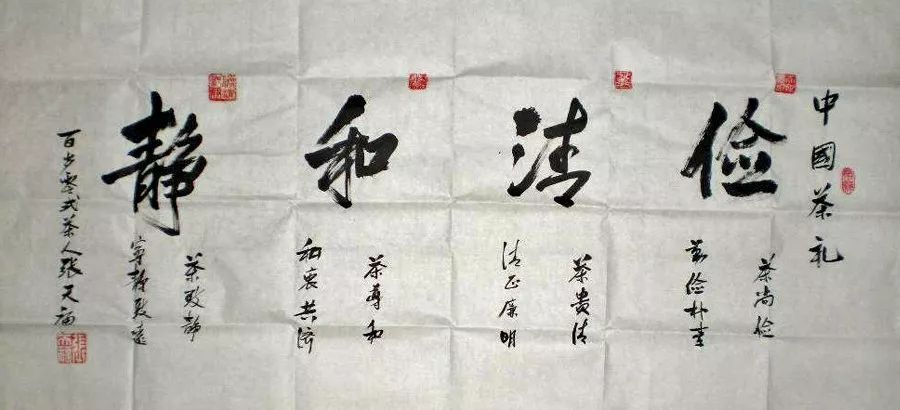 中國茶礼
俭
茶尚俭
节俭朴素
清
茶貴清
清正廉明
和
茶尊和
和衷共济
静
茶致静
寧静致遠
百岁零弍茶人張天福